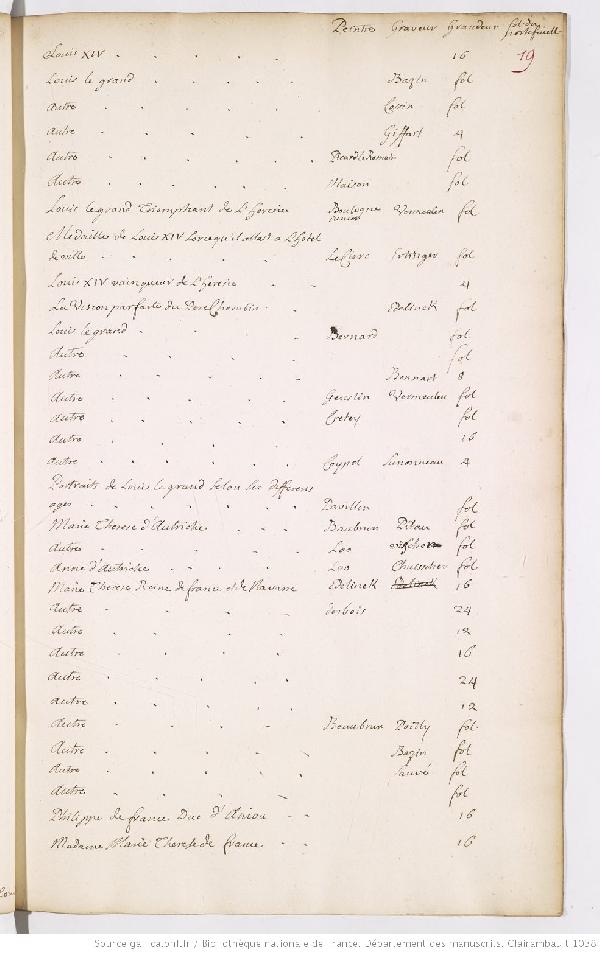 Peintre Graveur Grandeur fol. du portefeuill.
19
Louis XIV . . . . . . 16
Louis le grand . . . . . Bazin fol
Autre . . . . . . fol
Autre . . . . . . Giffart 4
Autre . . . . . . Picard le Romain fol
Autre . . . . . . Maison fol
Louis le grand Triomphant de L'Heresie Boulogne Vermeulen fol
Medailles de Louis XIV Lorsqu'il estoit a L'hotel
de ville . . . . . Le Clerc fol
Louis XIV vainqueur de L'Heresie . . 4
La Vision parfaite du Pere Cherubin . . fol
Louis le grand . . . . Bernard fol
Autre . . . . . fol
Autre . . . . . Bonnart 8
Autre . . . . . Vermeulen fol
Autre . . . . . fol
Autre . . . . . 16
Autre . . . . . Coypel Simonneau 4
Portraits de Louis le grand selon les differens
ages . . . . . Pavillon fol
Marie Therese d'Autriche . . . Baubrun Pitau fol
Autre . . . . . Loo fol
Anne d'Autriche . . . . Loo fol
Marie Therese Reine de france et de Navarre 16
Autre . . . . . 24
Autre . . . . . 12
Autre . . . . . 16
Autre . . . . . 24
Autre . . . . . 12
Autre . . . . . Beaubrun Poilly fol.
Autre . . . . . Bazin fol
Autre . . . . . fol
Autre . . . . . fol
Philippe de france Duc d'Aniou . . 16
Madame Marie Therese de france . . 16
Source gallica.bnf.fr / Bibliothèque nationale de France. Département des manuscrits. Clairambault 1038